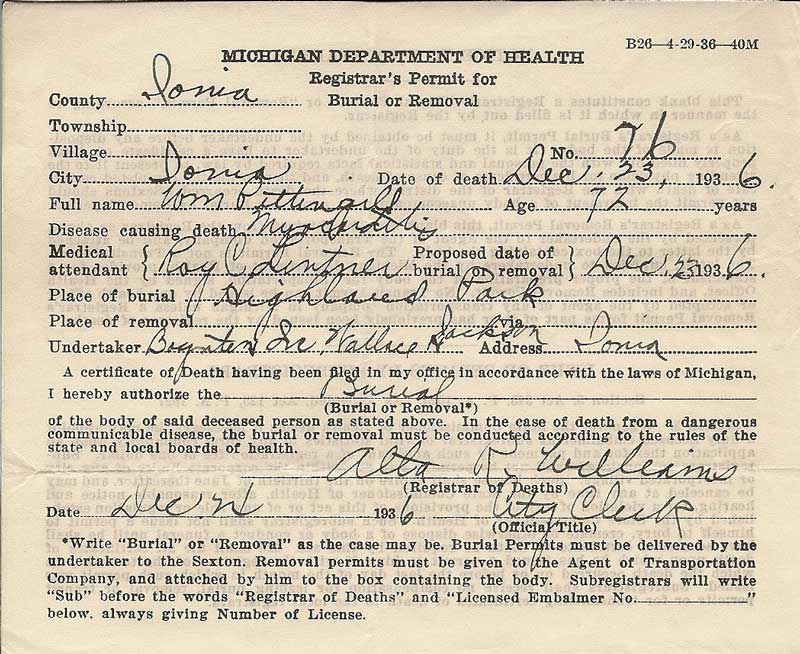 B26—4-29-36—40M
MICHIGAN DEPARTMENT OF HEALTH
Registrar's Permit for
Burial or Removal
County Ionia
Township
Village No. 76
City Ionia Date of death Dec. 23, 1936.
Full name Wm Age 72 years
Disease causing death Myocarditis
Medical attendant } Roy C Lintner Proposed date of burial or removal } Dec. 23 1936.
Place of burial Highland Park
Place of removal via
Undertaker Boynton Inc. Wallace H Jackson Address Ionia
A certificate of Death having been filed in my office in accordance with the laws of Michigan,
I hereby authorize the Burial
(Burial or Removal*)
of the body of said deceased person as stated above. In the case of death from a dangerous
communicable disease, the burial or removal must be conducted according to the rules of the
state and local boards of health.
R. Williams
(Registrar of Deaths)
Date Dec 1936 City Clerk
(Official Title)
*Write "Burial" or "Removal" as the case may be. Burial Permits must be delivered by the
undertaker to the Sexton. Removal permits must be given to the Agent of Transportation
Company, and attached by him to the box containing the body. Subregistrars will write
"Sub" before the words "Registrar of Deaths" and "Licensed Embalmer No. "
below. always giving Number of License.